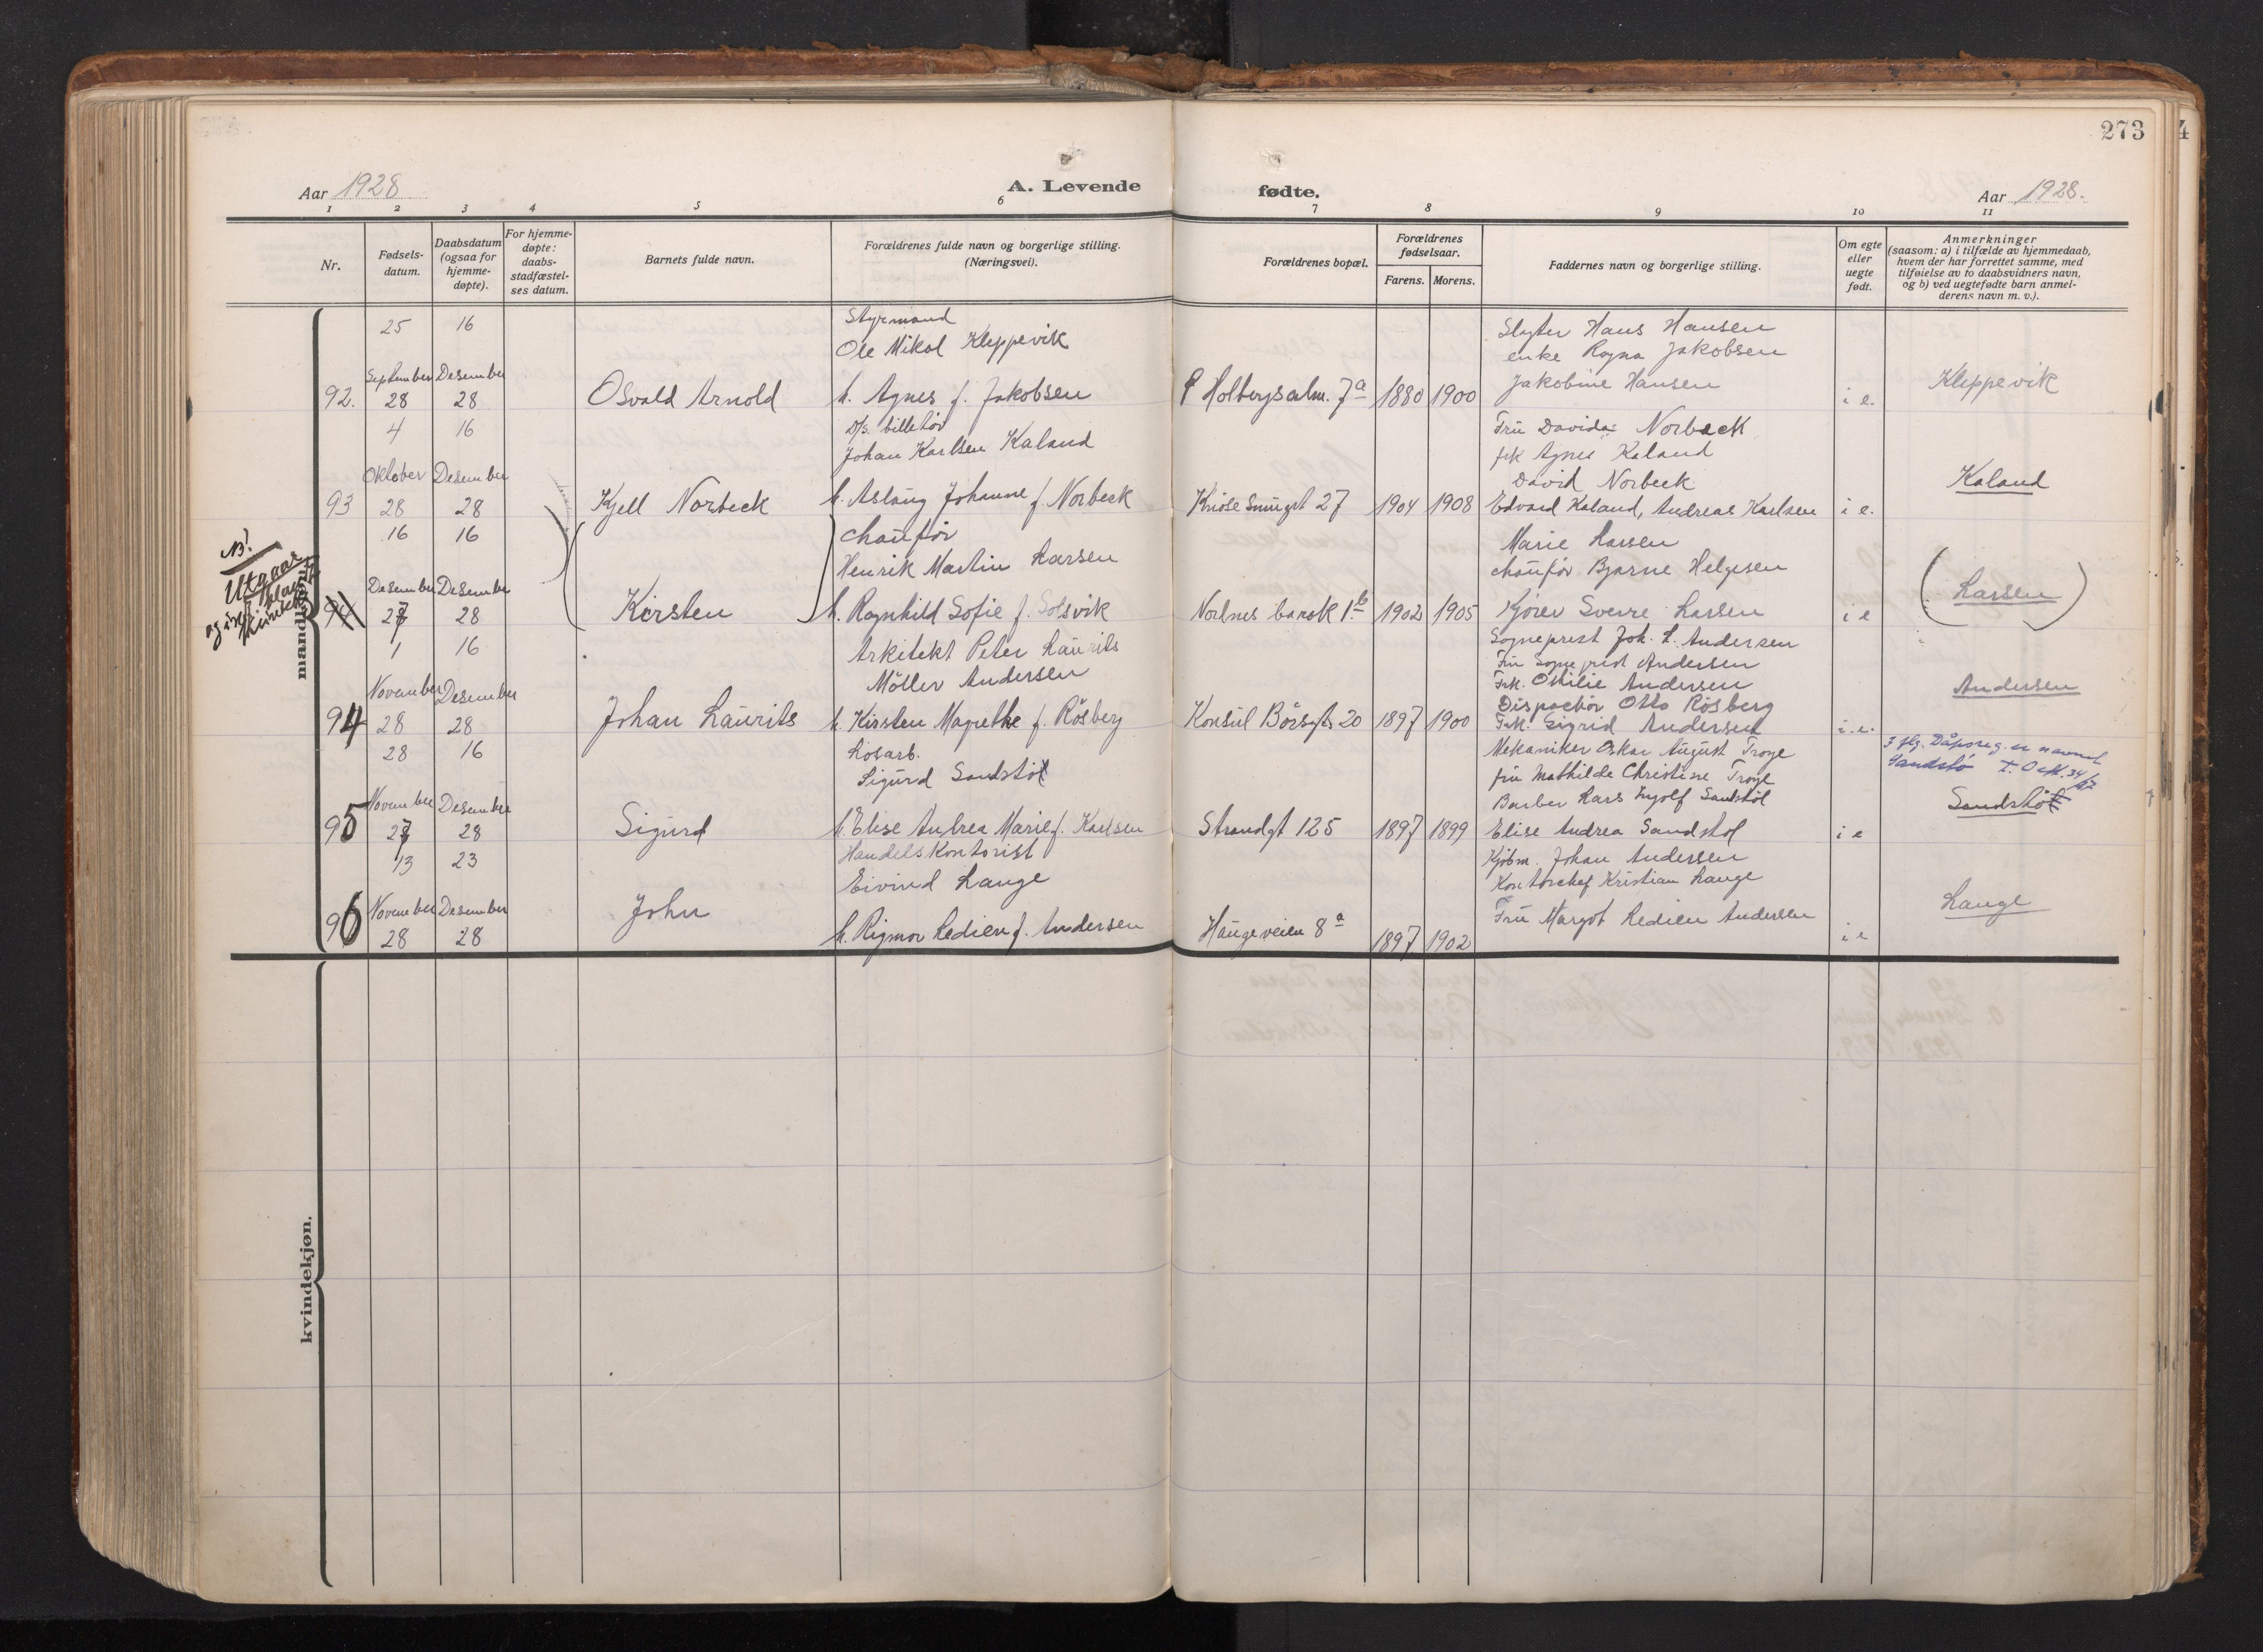 273
Aar 1928
A. Levende
fødte.
Aar 1928.
1 2 3 4 5 6 7 8 9 10 11
Nr.
Fødsels-
datum.
Daabsdatum
(ogsaa for
hjemme-
døpte).
For hjemme-
døpte:
daabs-
stadfæstel-
ses datum.
Barnets fulde navn.
Forældrenes fulde navn og borgerlige stilling.
(Næringsvei).
Forældrenes bopæl.
Forældrenes
fødselsaar.
Farens. Morens.
Faddernes navn og borgerlige stilling.
Om egte
eller
uegte
født.
Anmerkninger
(saasom: a) i tilfælde av hjemmedaab,
hvem der har forrettet samme, med
tilføielse av to daabsvidners navn,
og b) ved uegtefødte barn anmel-
derens navn m. v.).
mandkjøn.
25 16 Styrmand
Ole Mikal Kleppevik
Slagter Hans Hansen
enke Ragna Jakobsen
92. September 28 Desember 28 Osvald Arnold h. Agnes f. Jakobsen Holbergsalm. 7a 1880 1900 Jakobine Hansen i e. Kleppevik
4 16 D/s. billetør
Johan Karlsen Kaland
Fru Davida Norbeck
frk Agnes Kaland
David Norbeck
93 Oktober 28 Desember 28 Kjell Norbeck h. Aslaug Johanne f. Norbeck Knøsesmugt 27 1904 1908 Edvard Kaland, Andreas Karlsen i e. Kaland
NB!
Utgaar
16 16 Chauffør
Henrik Martin Larsen
Marie Larsen
chauffør Bjarne Helgesen
94 Desember 27 Desember 28 Kirsten h. Ragnhild Sofie f. Solsvik Nordnes barak 1.b 1902 1905 Kjører Sverre Larsen i e (Larsen)
1 16 Arkitekt Peter Laurits
Möller Andersen
Sogneprest Joh. L. Andersen
Fru Sogneprest Andersen
Frk. Othilie Andersen
Dispachør Otto Rösberg
94 November 28 Desember 28 Johan Laurits h. Kirsten Magrethe f. Rösberg Konsul Börsgt. 20 1897 1900 Frk. Sigrid Andersen i. e. Andersen
28 16 Løsarb.
Sigurd Sandstöl
Mekaniker Oskar August Troye
fru Mathilde Christine Troye
Barber Lars Ingolf Sandstöl
3 flg. Dåpsreg. er navnet
Sandstö
95 November 27 Desember 28 Sigurd h. Elise Andrea Marie f. Karlsen Strandgt 125 1897 1899 Elise Andrea Sandstöl i e Sandstöl
13 23 Handelskontorist
Eivind Lange
Kjøbm. Johan Andersen
Kontorchef Kristian Lange
96 November 28 Desember 28 John h. Rigmor Redien f. Andersen Haugeveien 8a 1897 1902 Fru Margot Redien Andersen i e Lange
kvindekjøn.